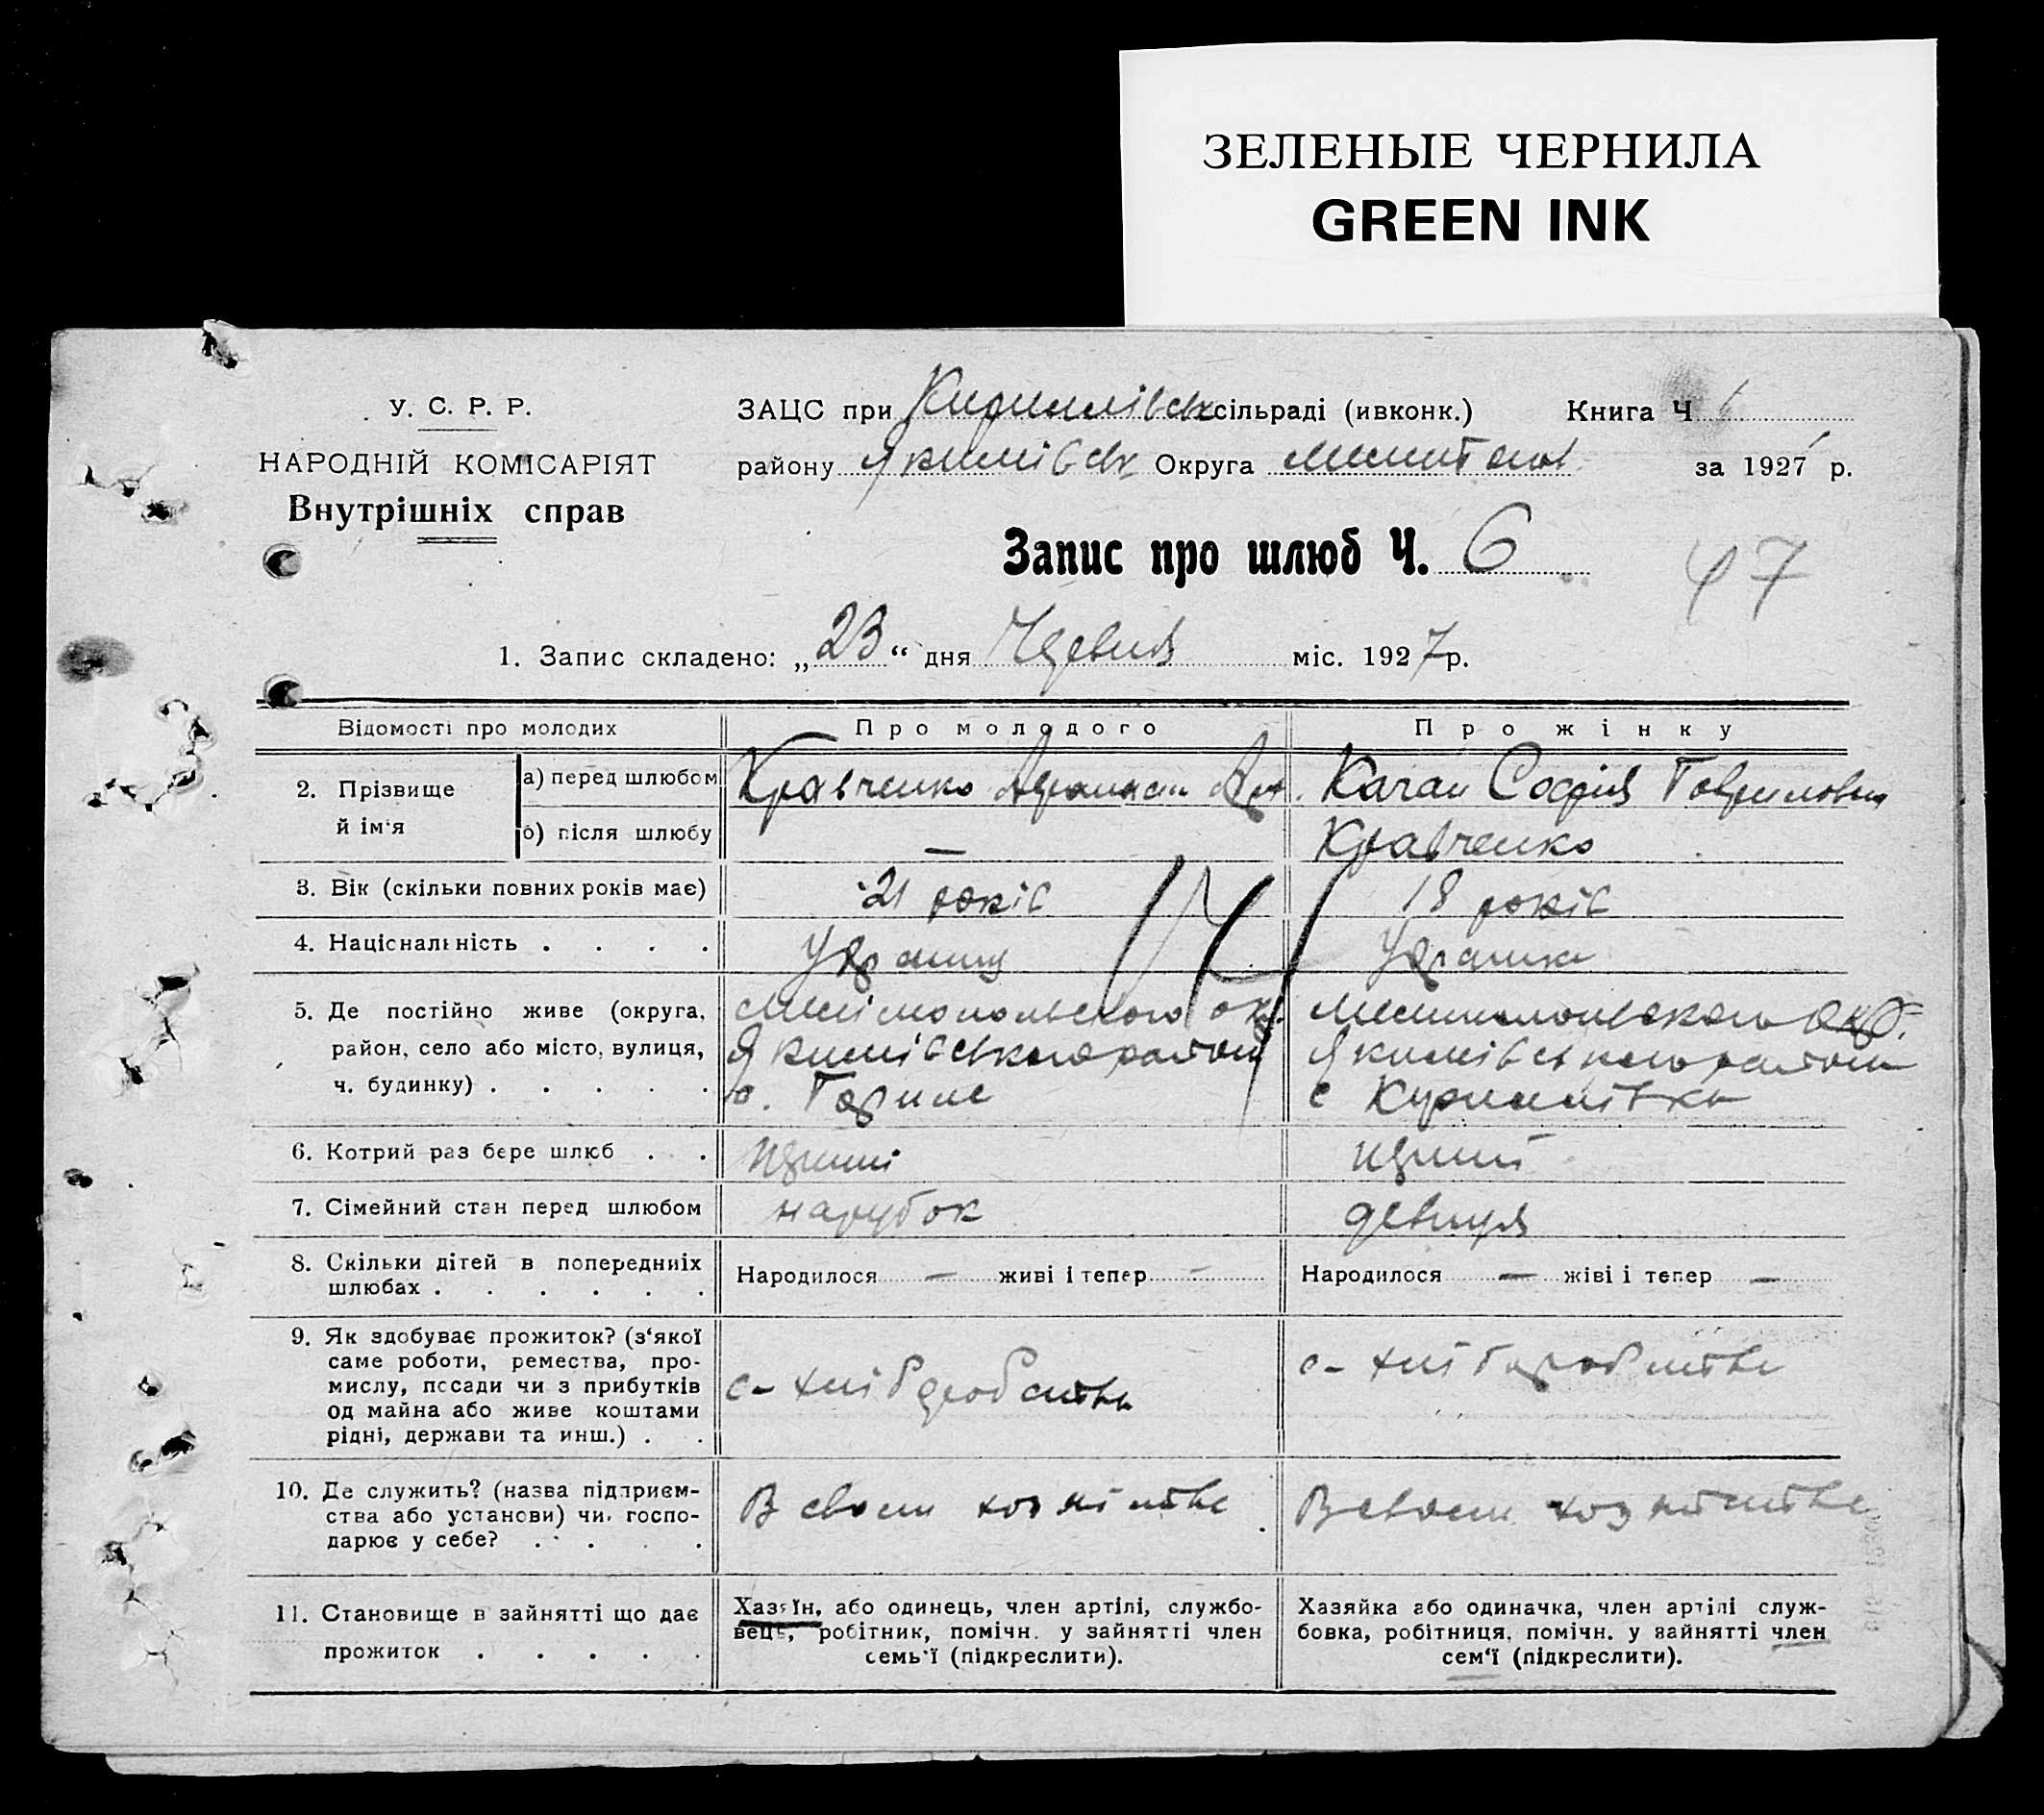 ЗЕЛЕНЫЕ ЧЕРНИЛА
GREEN INK
У. С. Р. Р.
НАРОДНІЙ КОМІСАРІЯТ
Внутрішніх справ
ЗАЦС при Кириллівськ сільраді (ивконк.) Книга Ч
району Якимівськ Округа Мелитоп за 1927 р.
Запис про шлюб Ч. 6
47
1. Запис складено: „23“ дня Червня міс. 1927 р.
Відомості про молодих
Про молодого
Про жінку
2. Прізвище й ім'я
а) перед шлюбом
Кравченко Афанасій
Качан Софія Гавриловна
б) після шлюбу
—
Кравченко
3. Вік (скільки повних років має)
21 років
18 років
4. Національність . . . .
Украинц
Украинка
5. Де постійно живе (округа,
район, село або місто, вулиця,
ч. будинку) . . . . .
Мелітопольского окр.
Якимівського район
с.
Мелитопольского окр.
Якимівського район
с Кирилівка
6. Котрий раз бере шлюб . .
перший
перший
7. Сімейний стан перед шлюбом
парубок
девиця
8. Скільки дітей в попередніх
шлюбах . . . . . .
Народилося — живі і тепер —
Народилося — жіві і тепер —
9. Як здобуває прожиток? (з'якої
саме роботи, ремества, про-
мислу, посади чи з прибутків
од майна або живе коштами
рідні, держави та инш.) . .
с-хлібороб
с-хлібороб
10. Де служить? (назва підприєм-
ства або установи) чи. госпо-
дарює у себе? . . . .
В своем хозяйстве
В своем хозяйстве
11. Становище в зайнятті що дає
прожиток . . . . .
Хазяїн, або одинець, член артілі, службо-
вець, робітник, помічн. у зайнятті член
семь'ї (підкреслити).
Хазяйка або одиначка, член артілі служ-
бовка, робітниця, помічн. у зайнятті член
сем'ї (підкреслити).